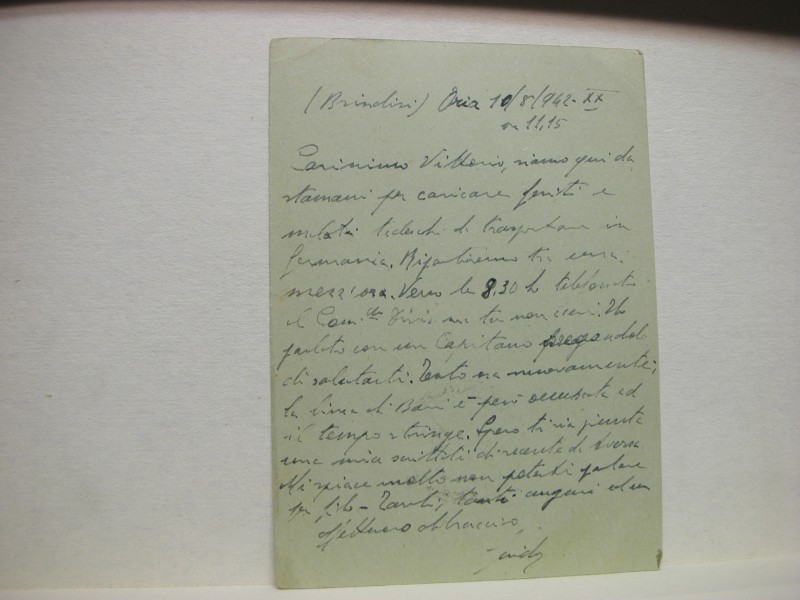 (Brindisi) Oria 10/8/942-XX
ore 11,15
Carissimo Vittorio, siamo qui da
stamani per caricare feriti e
malati tedeschi da trasportare in
Germania. Ripartiremo tra una
mezz'ora. Verso le 8.30 ho telefonato
al Com.do ma tu non c'eri. Ho
parlato con un Capitano pregandolo
di salutarti. Tento ora nuovamente;
la linea di Bari è però occupata ed
il tempo stringe. Spero ti sia giunta
una mia scritta di recente da
Mi spiace molto non poterti parlare
per filo - Tanti, tanti auguri ed un
affettuoso abbraccio,